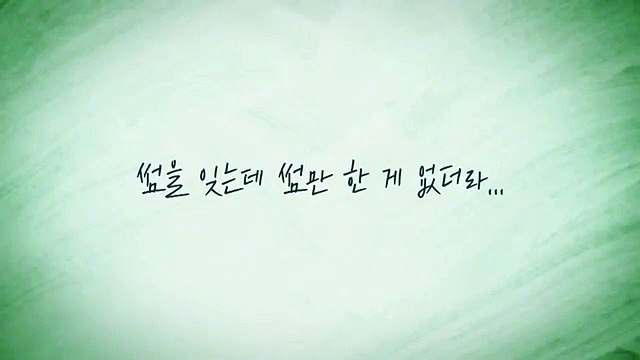 썸을 잊는데 썸만 한 게 없더라...